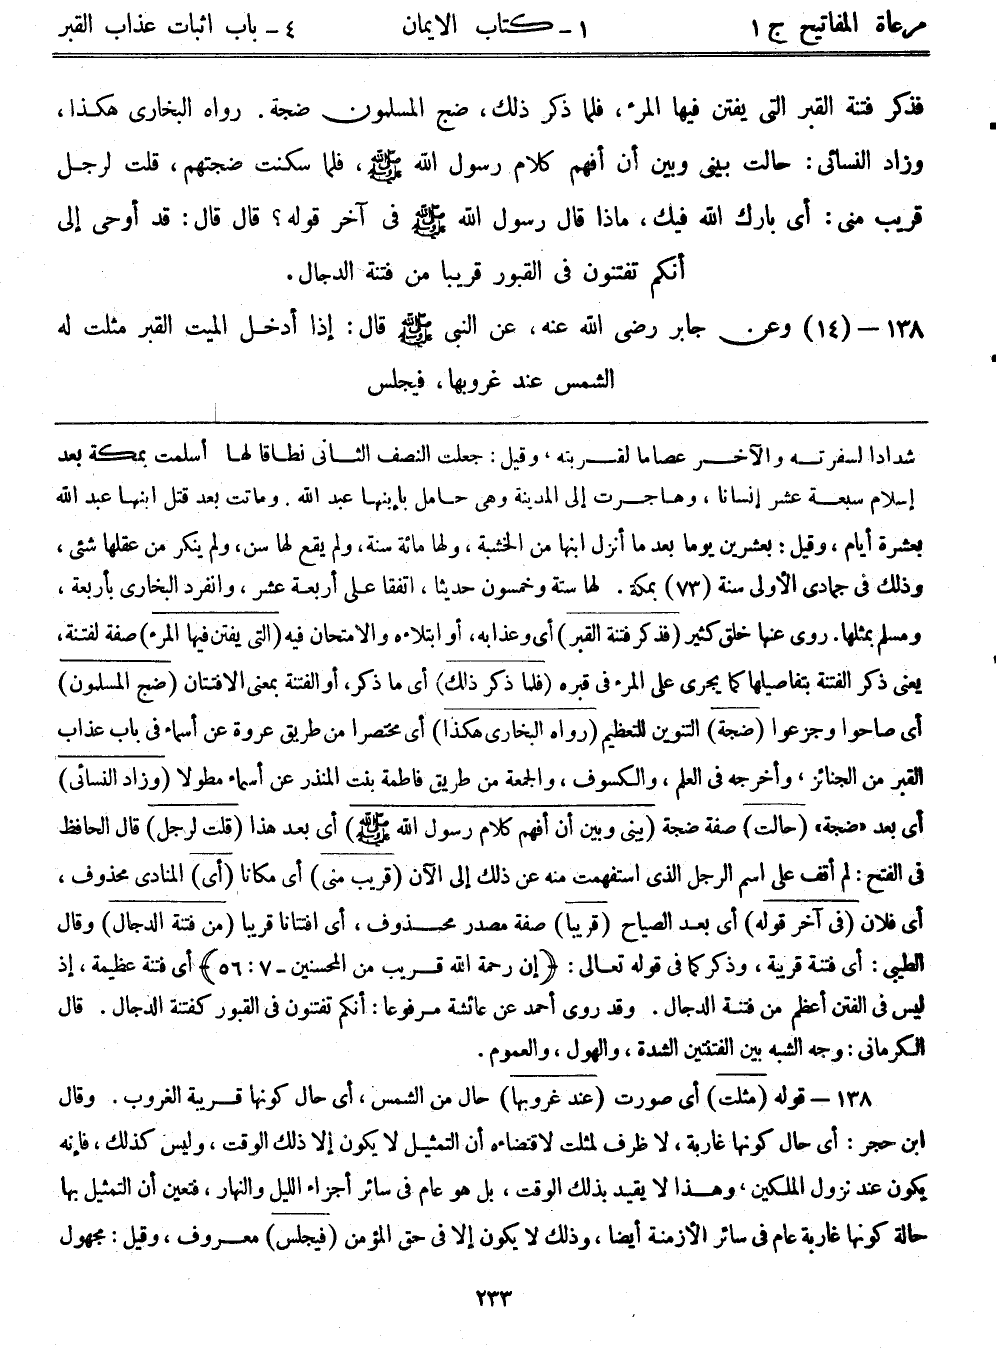 مرعاة المفاتيح ج ١ ١ـ كتاب الايمان ٤ ـ باب اثبات عذاب القبر
فذكر فتنة القبر التى يفتن فيها المرء، فلما ذكر ذلك، ضج المسلمون ضجة. رواه البخارى هكذا،
وزاد النسائى: حالت بينى وبين أن أفهم كلام رسول الله ﷺ، فلما سكنت ضجتهم، قلت لرجل
قريب منى: أى بارك الله فيك، ماذا قال رسول الله ﷺ فى آخر قوله؟ قال قال: قد أوحى إلى
أنكم تفتنون فى القبور قريبا من فتنة الدجال.
١٣٨ – (١٤) وعن جابر رضى الله عنه، عن النبى ﷺ قال: إذا أدخل الميت القبر مثلت له
الشمس عند غروبها، فيجلس
شدادا لسفرته والآخر عصاما لقربته، وقيل: جعلت النصف الثانى نطاقا لها أسلمت بمكة بعد
إسلام سبعة عشر إنسانا، وهاجرت إلى المدينة وهى حامل بابنها عبد الله. وماتت بعد قتل ابنها عبد الله
بعشرة أيام، وقيل: بعشرين يوما بعد ما أنزل ابنها من الخشبة، ولها مائة سنة، ولم يقع لها سن، ولم ينكر من عقلها شئى،
وذلك فى جمادى الأولى سنة (٧٣) بمكة. لها ستة وخمسون حديثا، اتفقا على أربعة عشر، وانفرد البخارى بأربعة،
ومسلم بمثلها. روى عنها خلق كثير (فذكر فتنة القبر) أى وعذابه، أو ابتلاءه والامتحان فيه (التى يفتن فيها المرء) صفة لفتنة،
يعنى ذكر الفتنة بتفاصيلها كما يجرى على المرء فى قبره (فلما ذكر ذلك) أى ما ذكر، أو الفتنة بمعنى الافتتان (ضج المسلمون)
أى صاحوا وجزعوا (ضجة) التنوين للتعظيم (رواه البخارى هكذا) أى مختصرا من طريق عروة عن أسماء فى باب عذاب
القبر من الجنائز، وأخرجه فى العلم، والكسوف، والجمعة من طريق فاطمة بنت المنذر عن أسماء مطولا (وزاد النسائى)
أى بعد «ضجة» (حالت) صفة ضجة (بينى وبين أن أفهم كلام رسول الله ﷺ) أى بعد هذا (قلت لرجل) قال الحافظ
فى الفتح: لم أقف على اسم الرجل الذى استفهمت منه عن ذلك إلى الآن (قريب منى) أى مكانا (أى) المنادى محذوف،
أى فلان (فى آخر قوله) أى بعد الصياح (قريبا) صفة مصدر محذوف، أى افتتانا قريبا (من فتنة الدجال) وقال
الطيبى: أى فتنة قريبة، وذكر كما فى قوله تعالى: ﴿إن رحمة الله قريب من المحسنين ـ ٧ : ٥٦﴾ أى فتنة عظيمة، إذ
ليس فى الفتن أعظم من فتنة الدجال. وقد روى أحمد عن عائشة مرفوعا: أنكم تفتنون فى القبور كفتنة الدجال. قال
الكرمانى: وجه الشبه بين الفتنتين الشدة، والهول، والعموم.
١٣٨ – قوله (مثلت) أى صورت (عند غروبها) حال من الشمس، أى حال كونها قريبة الغروب. وقال
ابن حجر: أى حال كونها غاربة، لا ظرف لمثلت لاقتضاءه أن التمثيل لا يكون إلا ذلك الوقت، وليس كذلك، فإنه
يكون عند نزول الملكين، وهذا لا يقيد بذلك الوقت، بل هو عام فى سائر أجزاء الليل والنهار، فتعين أن التمثيل بها
حالة كونها غاربة عام فى سائر الأزمنة أيضا، وذلك لا يكون إلا فى حق المؤمن (فيجلس) معروف، وقيل: مجهول
٢٣٣